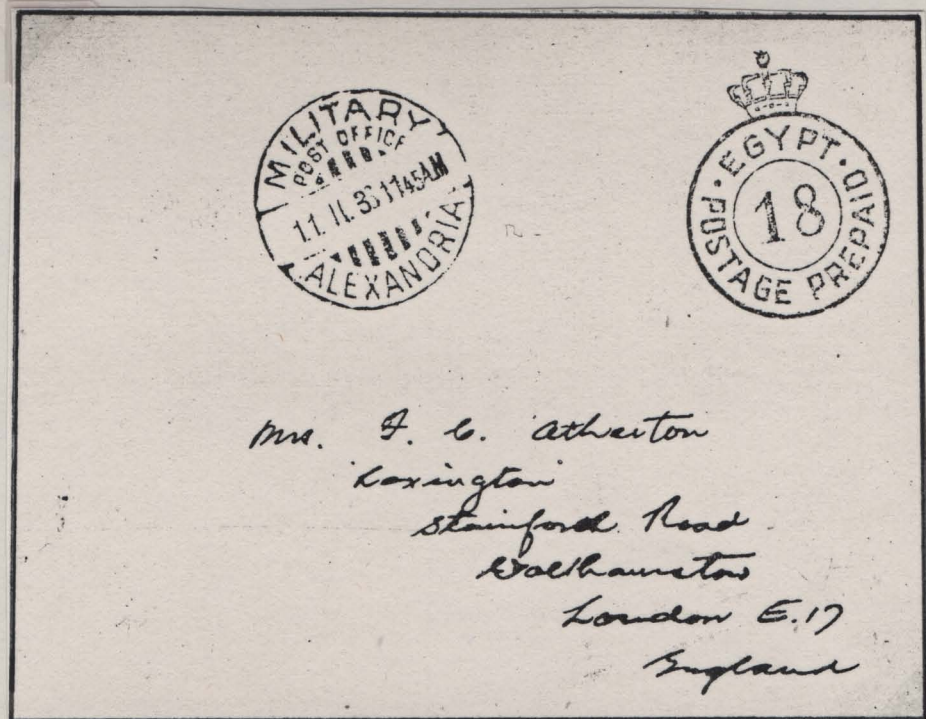 MILITARY
POST OFFICE
11. II. 36 1145AM
ALEXANDRIA
EGYPT
18
POSTAGE PREPAID
Mrs. F. C. Atherton
Loxington
Stainforth Road
Walthamstow
London E.17
England